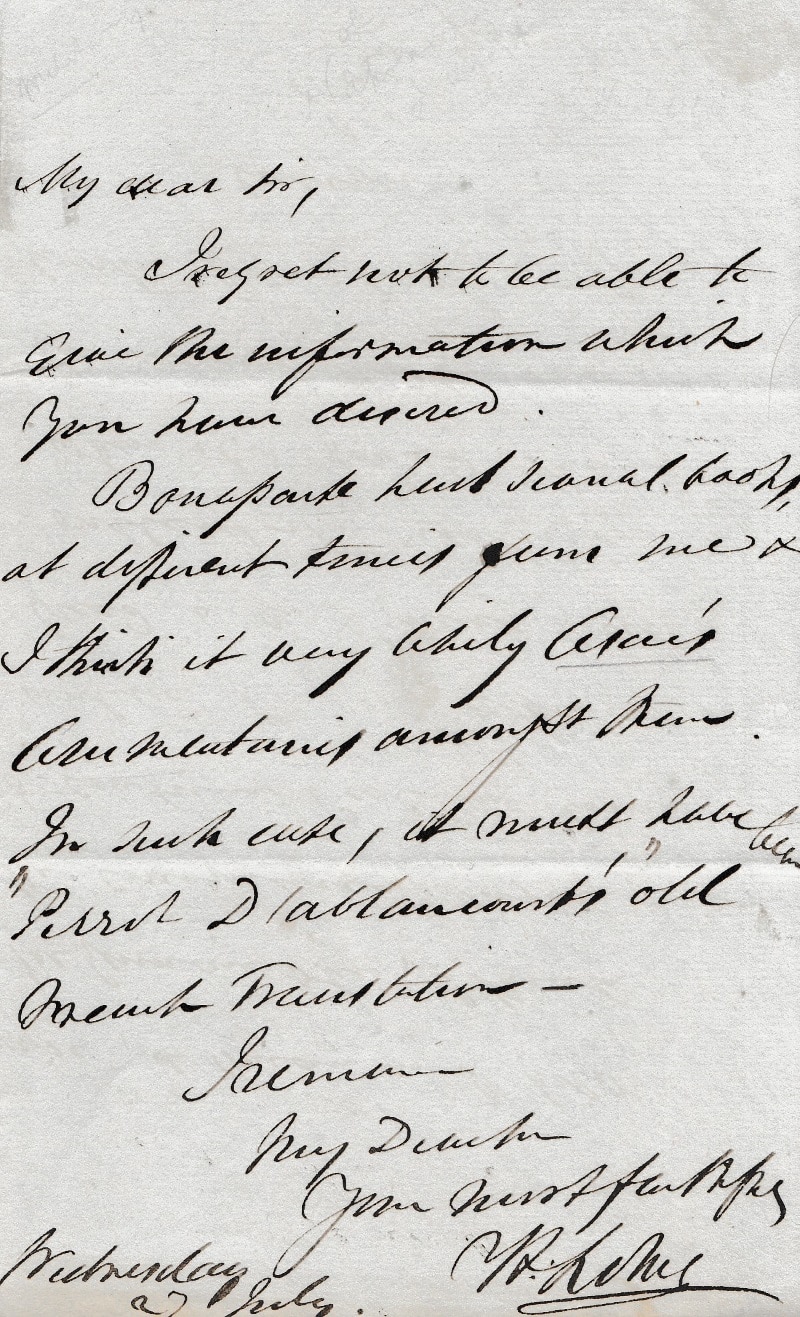 My dear Sir,
I regret not to be able to
give the information which
you have desired.
Bonaparte had several books,
at different times from me &
I think it very likely Cesar's
Commentaries amongst them.
In such case, it must have been
"Perrot D'ablancourt's" old
French Translation —
I remain
My Dear Sir
Your most faithfully
H. Lowe
Wednesday
27 July.